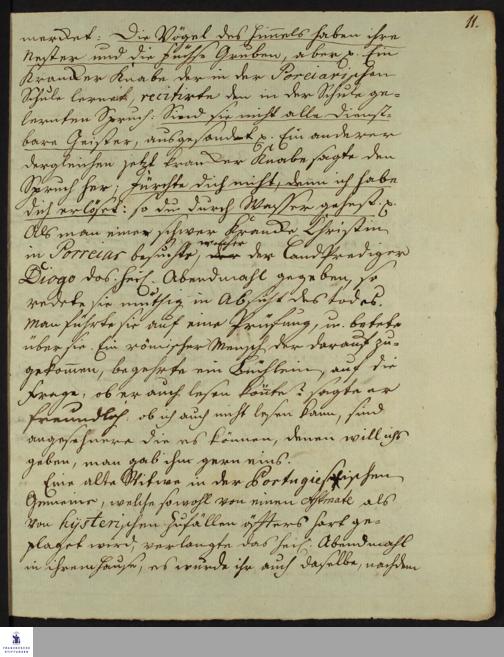 11.
mercket: Die Vögel des Himmels haben ihre
Nester, und die Füchse Gruben, aber p. Ein
Krancker Knabe der in der Poreiarischen
Schule lernet, recitirte den in der Schule ge-
lernten Spruch: Sind sie nicht alle dienst-
bare Geister, ausgesandt p. Ein anderer
dergleichen jetzt krancker Knabe sagte den
Spruch her; Fürchte dich nicht, denn ich habe
dich erlöset: so du durch Wasser gehest. p.
Als man einer schwer Krancke Christin
in Porreiar besuchte, welcher der Landprediger
Diogo das heil. Abendmahl gegeben, so
redete sie muthig in Absicht des todes.
Man führte sie auf eine Prüfung, u. betete
über sie. Ein römischer Mensch, der darauf zu-
gekommen, begehrte ein Büchlein, auf die
Frage, ob er auch lesen könte? sagte er
freundlich: ob ich auch nicht lesen kann, sind
angesehnere die es können, denen will ichs
geben, man gab ihm gern eins.
Eine alte Witwe in der Portugiesischen
Gemeine, welche sowohl von einen Asthmate als
von hysterischen Zufällen öffters hart ge-
plaget wird, verlangte das heil. Abendmahl
in ihrem Hause, es wurde ihr auch daselbst, nachdem
FRANCKESCHE
STIFTUNGEN